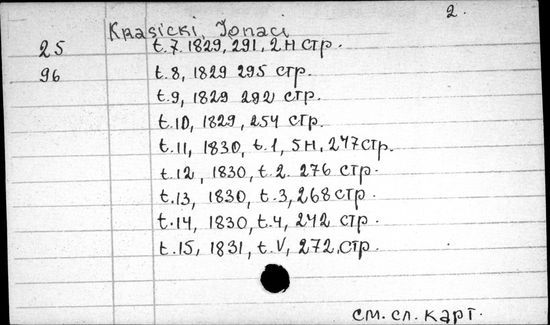 2.
Krasicki, Ignaci
25 t.7. 1829, 291, 2н стр.
96 t.8, 1829 295 стр.
t.9, 1829 292 стр.
t.10, 1829, 254 стр.
t.11, 1830, t.1, 5н, 247 стр.
t.12, 1830, t.2. 276 стр.
t.13, 1830, t.3, 268 стр.
t.14, 1830, t.4, 242 стр.
t.15, 1831, t.V, 272, стр.
см. сл. карт.